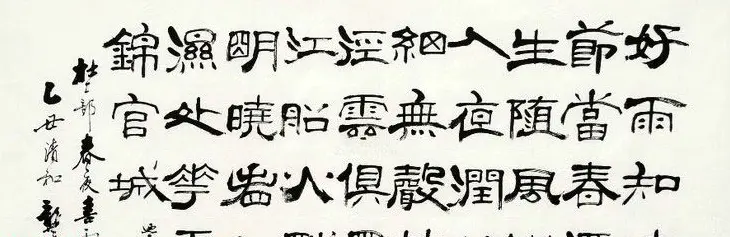 好雨知
節當春
生随風
入夜潤
細無聲
徑雲俱
江船火
明曉看
濕处花
錦官城
杜工部春夜喜
乙丑清和